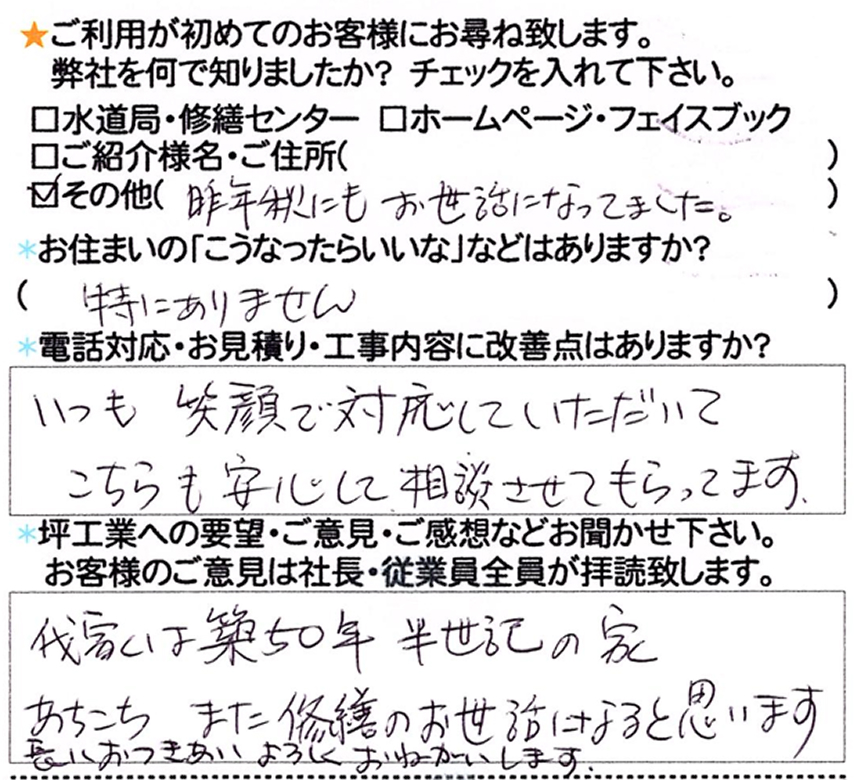 ★ご利用が初めてのお客様にお尋ね致します。
弊社を何で知りましたか? チェックを入れて下さい。
□水道局・修繕センター □ホームページ・フェイスブック
□ご紹介様名・ご住所( )
☑その他( 昨年秋にも お世話になってました。 )
*お住まいの「こうなったらいいな」などはありますか?
( 特にありません )
*電話対応・お見積り・工事内容に改善点はありますか?
いつも 笑顔で対応していただいて
こちらも 安心して相談させてもらってます。
*坪工業への要望・ご意見・ご感想などお聞かせ下さい。
お客様のご意見は社長・従業員全員が拝読致します。
我家は築50年 半世記の家
あちこち また修繕のお世話になると思います
長いおつきあい よろしく おねがいします.